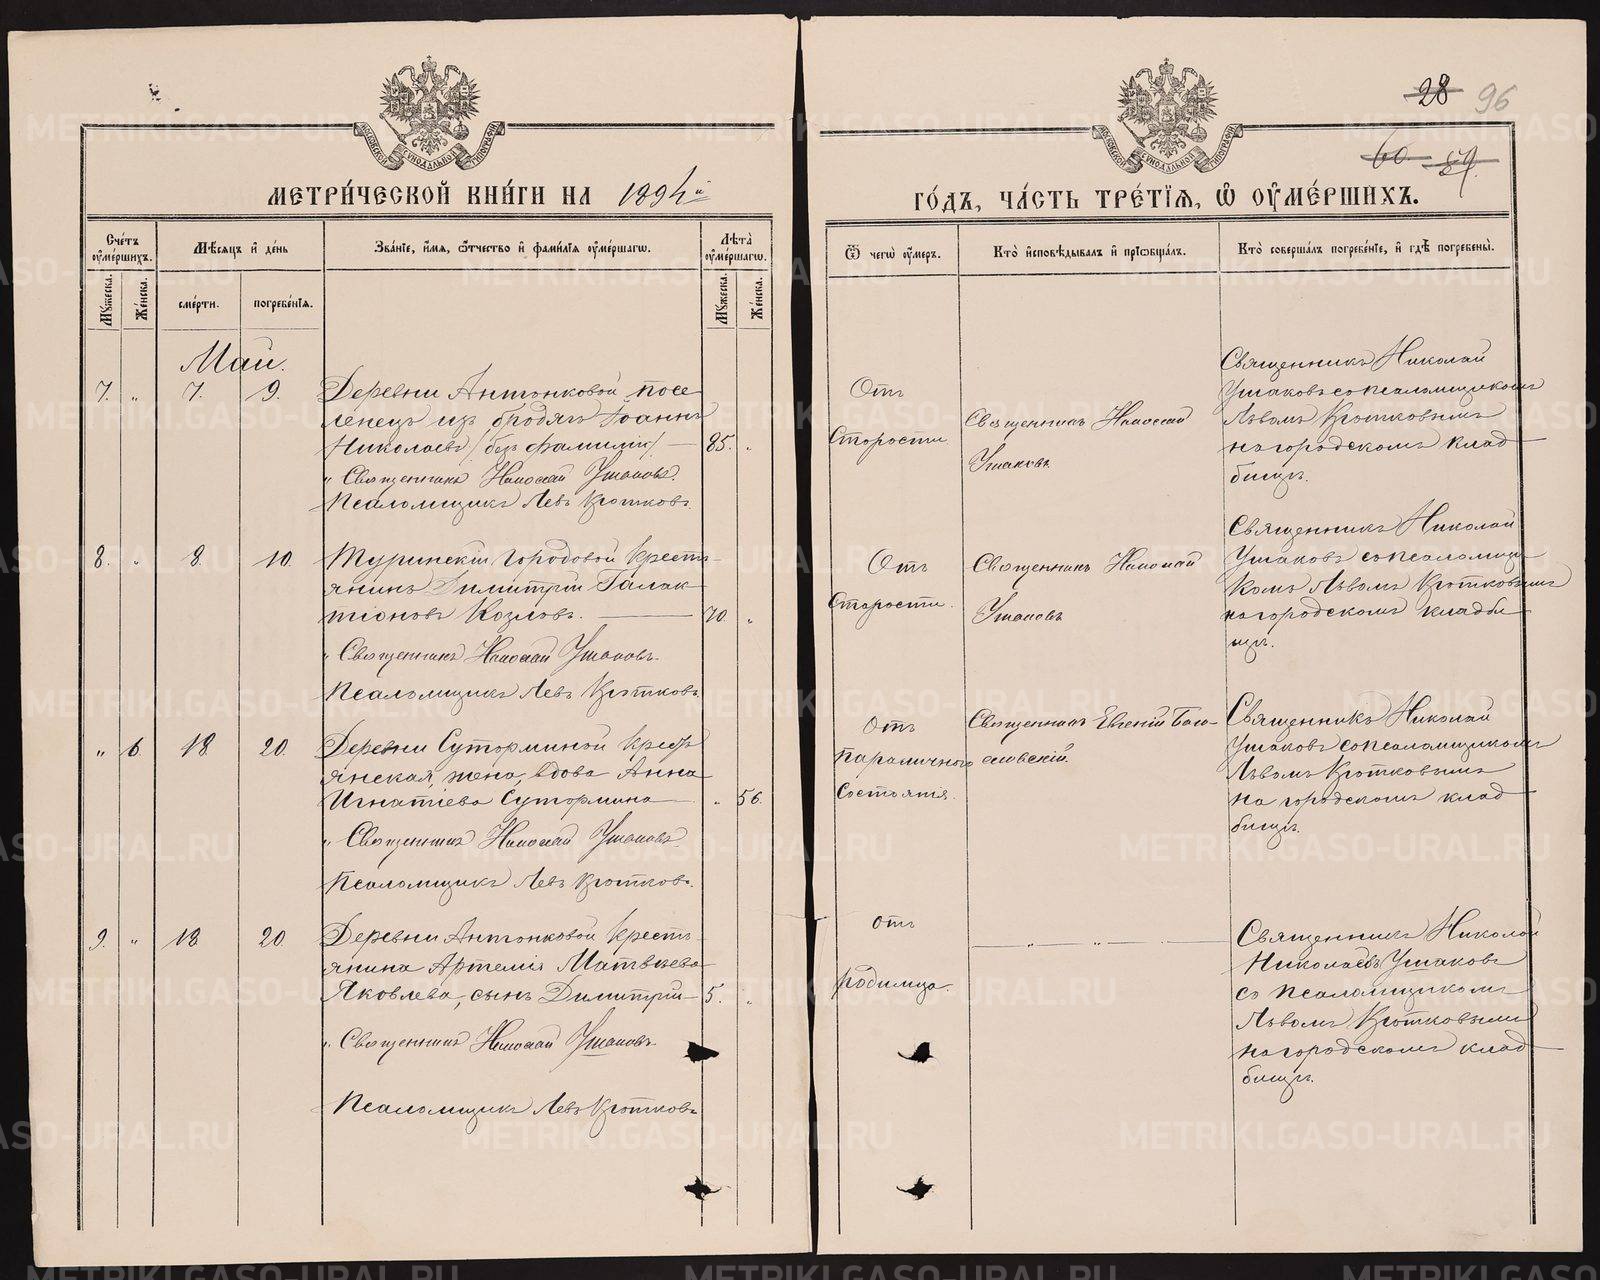 28 96
60 59
МОСКОВСКОЙ СУНОДАЛЬНОЙ ТИПОГРАФІИ
МОСКОВСКОЙ СУНОДАЛЬНОЙ ТИПОГРАФІИ
МЕТРИ́ЧЕСКОЙ КНИ́ГИ НА 1894й
ГО́ДЪ, ЧА́СТЬ ТРЕ́ТІѦ, Ѽ ОУ҆МЕ́РШИХЪ.
Сче́тъ оу҆ме́ршихъ.
Мѣ́сѧцъ и҆ де́нь
Зва́нїе, и҆́мѧ, ѻ҆́тчество и҆ фами́лїѧ оу҆ме́ршагѡ.
Лѣта̀ оу҆ме́ршагѡ.
Ѿ чегѡ̀ оу҆́меръ.
Кто̀ и҆сповѣ́дывалъ и҆ прїѡбща́лъ.
Кто̀ соверша́лъ погребе́нїе, и҆ гдѣ̀ погребены̀.
Мꙋ́жеска.
Же́нска.
сме́рти.
погребе́нїѧ.
Мꙋ́жеска.
Же́нска.
Май.
7. „ 7. 9.
Деревни Антонковой посе-
ленецъ изъ бродягъ Іоаннъ
Николаевъ /безъ фамиліи/ — 85. „
„ Священникъ Николай Ушаковъ.
Псаломщикъ Левъ Кротковъ.
Отъ
старости.
Священникъ Николай
Ушаковъ
Священникъ Николай
Ушаковъ со псаломщикомъ
Львомъ Кротковымъ
на городскомъ клад
бищѣ.
8. „ 8. 10.
Туринскій городовой кресть-
янинъ Димитрій Галак-
тіоновъ Козловъ. — 70. „
„ Священникъ Николай Ушаковъ.
Псаломщикъ Левъ Кротковъ.
Отъ
старости.
Священникъ Николай
Ушаковъ
Священникъ Николай
Ушаковъ со псаломщи-
комъ Львомъ Кротковымъ
на городскомъ кладби-
щѣ.
„ 6. 18. 20.
Деревни Суторминой кресть-
янская жена, вдова Анна
Игнатіева Сутормина — „ 56.
„ Священникъ Николай Ушаковъ.
Псаломщикъ Левъ Кротковъ.
Отъ
параличнаго
состоянія.
Священникъ Евгеній Бого-
словскій.
Священникъ Николай
Ушаковъ со псаломщикомъ
Львомъ Кротковымъ
на городскомъ клад
бищѣ.
9. „ 18. 20.
Деревни Антонковой кресть-
янина Артемія Матвѣева
Яковлева, сынъ Димитрій — 5. „
„ Священникъ Николай Ушаковъ.
Псаломщикъ Левъ Кротковъ
отъ
родимца.
— „ — „ —
Священникъ Николай
Николаевъ Ушаковъ
со псаломщикомъ
Львомъ Кротковымъ
на городскомъ клад-
бищѣ.
METRIKI.GASO-URAL.RU